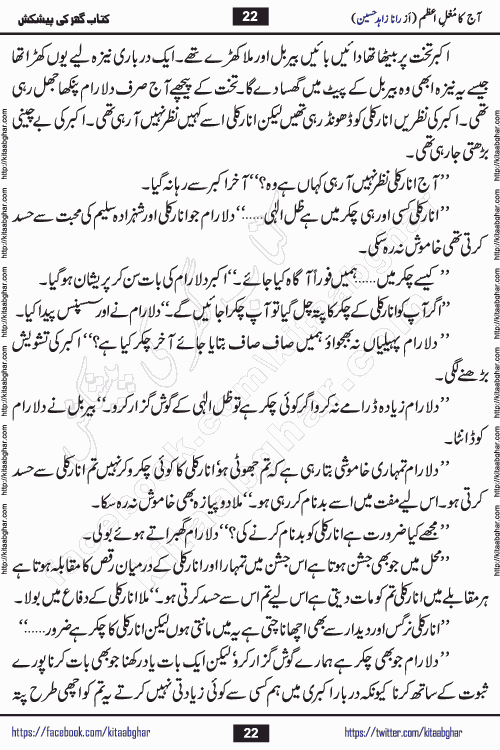 آج کا مُغلِ اعظم (اَز رانا زاہد حسین)
22
کتاب گھر کی پیشکش
اکبر تخت پر بیٹھا تھا دائیں بائیں بیربل اور ملا کھڑے تھے۔ ایک درباری نیزہ لیے یوں کھڑا تھا
جیسے یہ نیزہ ابھی وہ بیربل کے پیٹ میں گھسا دے گا۔ تخت کے پیچھے آج صرف دلا رام پنکھا جھل رہی
تھی۔ اکبر کی نظریں انارکلی کو ڈھونڈ رہی تھیں لیکن انارکلی اسے کہیں نظر نہیں آ رہی تھی۔ اکبر کی بے چینی
بڑھتی جا رہی تھی۔
’’آج انارکلی نظر نہیں آ رہی کہاں ہے وہ؟‘‘ آخر اکبر سے رہا نہ گیا۔
’’انارکلی کسی اور ہی چکر میں ہے ظل الٰہی......‘‘ دلا رام جو انارکلی اور شہزادہ سلیم کی محبت سے حسد
کرتی تھی خاموش نہ رہ سکی۔
’’کیسے چکر میں...... ہمیں فوراً آگاہ کیا جائے۔‘‘ اکبر دلا رام کی بات سن کر پریشان ہو گیا۔
’’اگر آپ کو انارکلی کے چکر کا پتہ چل گیا تو آپ چکرا جائیں گے۔‘‘ دلا رام نے اور سسپنس پیدا کیا۔
’’دلا رام پہیلیاں نہ بھجواؤ ہمیں صاف صاف بتایا جائے آخر چکر کیا ہے؟‘‘ اکبر کی تشویش
بڑھنے لگی۔
’’دلا رام زیادہ ڈرامے نہ کرو اگر کوئی چکر ہے تو ظل الٰہی کے گوش گزار کرو۔‘‘ بیربل نے دلا رام
کو ڈانٹا۔
’’دلا رام تمہاری خاموشی بتا رہی ہے کہ تم جھوٹی ہو انارکلی کا کوئی چکر وکر نہیں تم انارکلی سے حسد
کرتی ہو۔ اس لیے مفت میں اسے بدنام کر رہی ہو۔‘‘ ملا دو پیازہ بھی خاموش نہ رہ سکا۔
’’مجھے کیا ضرورت ہے انارکلی کو بدنام کرنے کی؟‘‘ دلا رام گھبراتے ہوئے بولی۔
’’محل میں جو بھی جشن ہوتا ہے اس جشن میں تمہارا اور انارکلی کے درمیان رقص کا مقابلہ ہوتا ہے
ہر مقابلے میں انارکلی تم کو مات دیتی ہے اس لیے تم اس سے حسد کرتی ہو۔‘‘ ملا انارکلی کے دفاع میں بولا۔
’’انارکلی نرگس اور دیدار سے بھی اچھا ناچتی ہے یہ میں مانتی ہوں لیکن انارکلی کا چکر ہے ضرور......‘‘
’’دلا رام جو بھی چکر ہے ہمارے گوش گزار کرو‘ لیکن ایک بات یاد رکھنا جو بھی بات کرنا پورے
ثبوت کے ساتھ کرنا کیونکہ دربار اکبری میں ہم کسی سے کوئی زیادتی نہیں کرتے یہ تم کو اچھی طرح پتہ
https://facebook.com/kitaabghar
22
https://twitter.com/kitaabghar
http://kitaabghar.com
http://kitaabghar.com
http://kitaabghar.com
http://kitaabghar.com
http://kitaabghar.com
http://kitaabghar.com
http://kitaabghar.com
http://kitaabghar.com